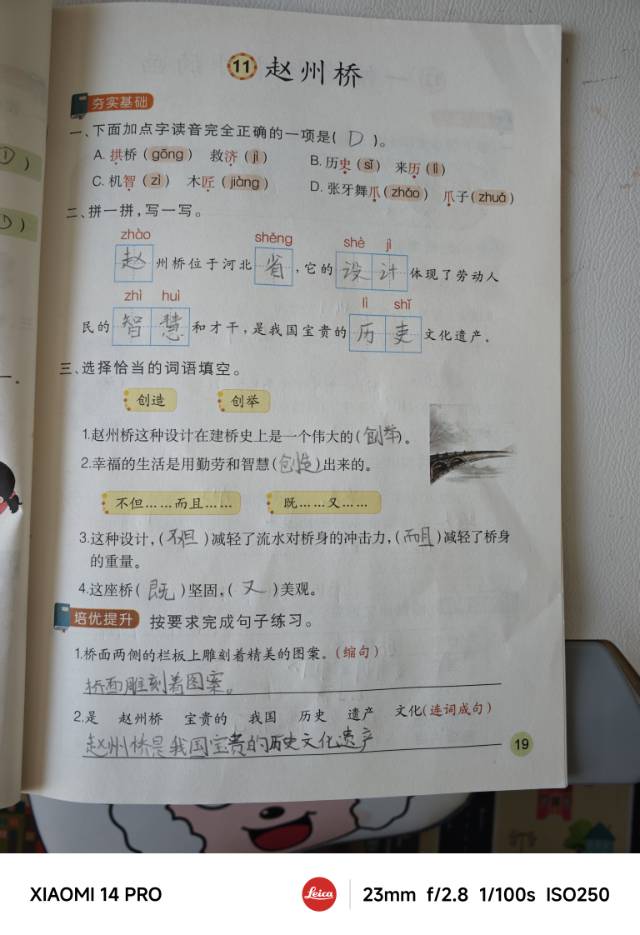 11 赵州桥
夯实基础
一、下面加点字读音完全正确的一项是( D )。
A. 拱桥(gǒng) 救济(jì) B. 历史(sǐ) 来历(lì)
C. 机智(zì) 木匠(jiàng) D. 张牙舞爪(zhǎo) 爪子(zhuǎ)
二、拼一拼,写一写。
zhào shěng shè jì
赵州桥位于河北省,它的设计体现了劳动人
zhì huì lì shǐ
民的智慧和才干,是我国宝贵的历史文化遗产。
三、选择恰当的词语填空。
创造 创举
1.赵州桥这种设计在建桥史上是一个伟大的(创举)。
2.幸福的生活是用勤劳和智慧(创造)出来的。
不但……而且…… 既……又……
3.这种设计,(不但)减轻了流水对桥身的冲击力,(而且)减轻了桥身
的重量。
4.这座桥(既)坚固,(又)美观。
培优提升 按要求完成句子练习。
1.桥面两侧的栏板上雕刻着精美的图案。(缩句)
桥面雕刻着图案。
2.是 赵州桥 宝贵的 我国 历史 遗产 文化(连词成句)
赵州桥是我国宝贵的历史文化遗产
19
XIAOMI 14 PRO Leica 23mm f/2.8 1/100s ISO250